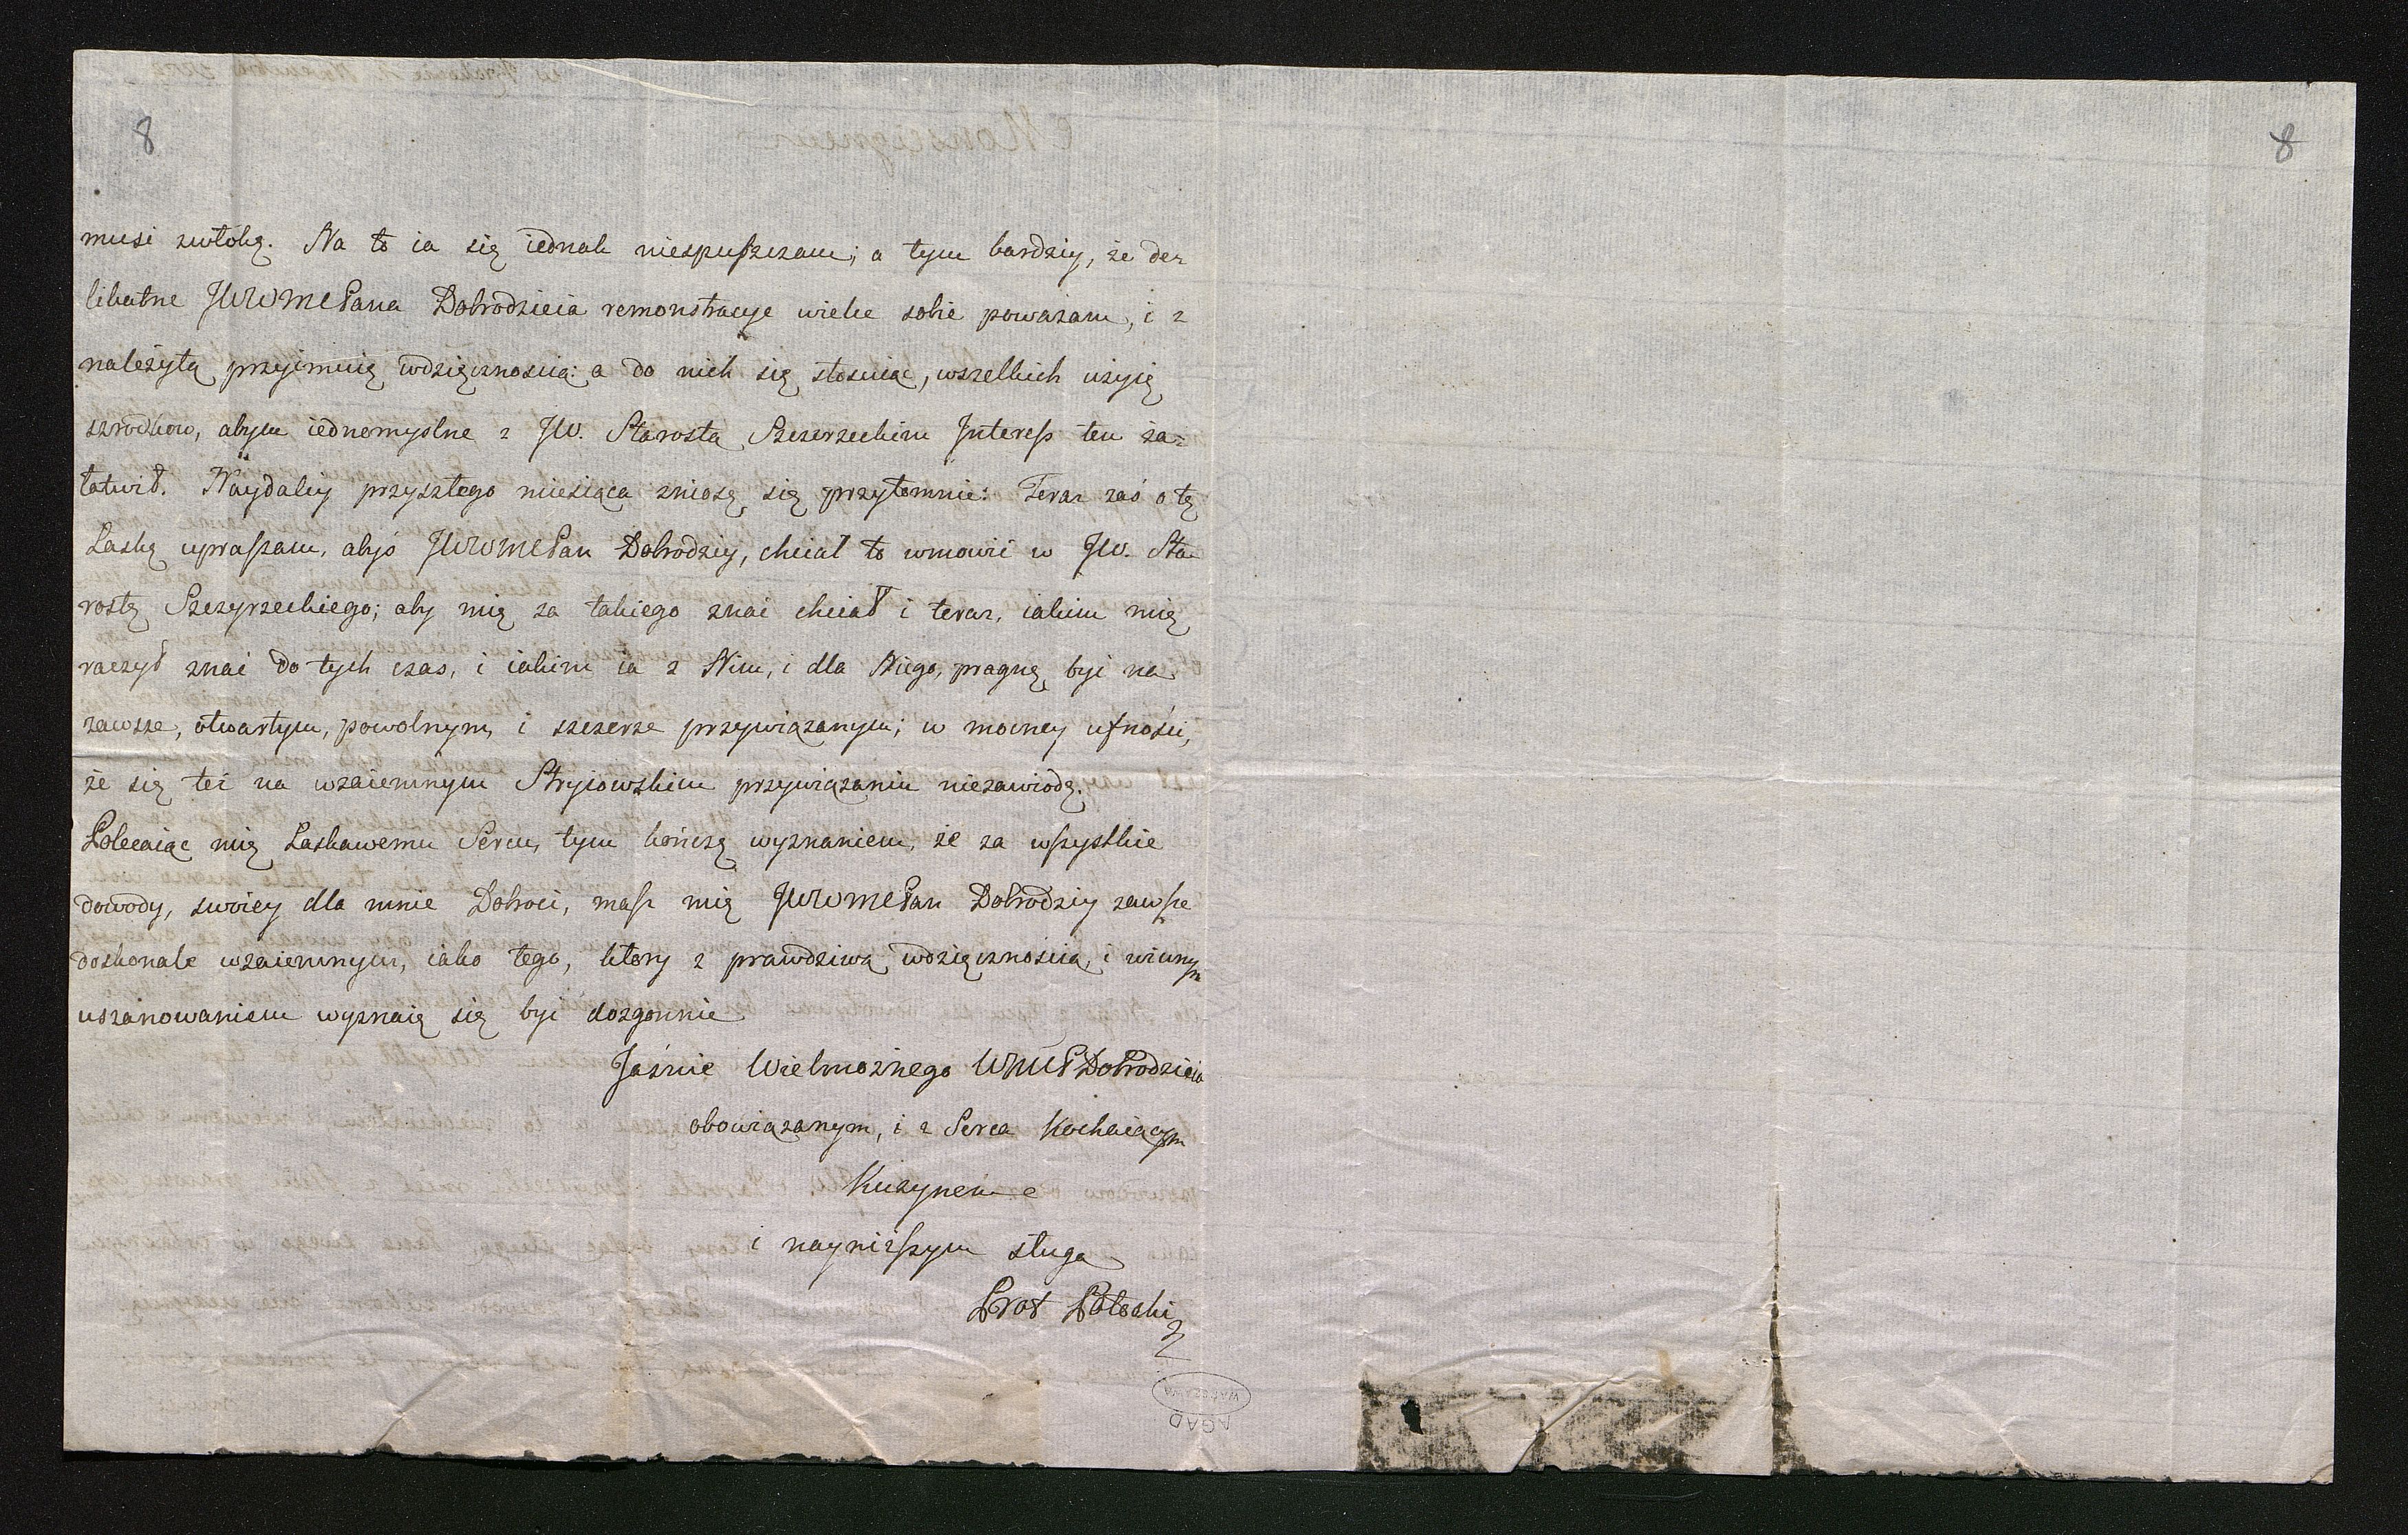 8
8
musi zwłokę. Na to ia się iednak niespuszczam; a tym bardziy, że de-
likatne JWWMCPana Dobrodzieia remonstracye wielce sobie poważam, i z
należytą przyimuię wdzięcznoscią: a do nich się stosuiąc, wszelkich użyię
szrodkow, abym iednomyslne z JW. Starostą Szczerzeckim Jnteress ten za=
łatwił. Naydaliy przyszłego miesiąca zniosę się przytomnie: Teraz zaś o tę
Łaskę upraszam, abyś JWWMCPan Dobrodziy, chciał to wmowić w JW. Sta-
rostę Szczyrzeckiego; aby mię za takiego znać chciał i teraz, iakim mię
raczył znać do tych czas, i iakim ia z Nim, i dla Niego, pragnę być na
zawsze, otwartym, powolnym, i szczerze przywiązanym; w mocney ufności,
że się też na wzaiemnym Stryiowskim przywiązaniu niezawiodę.
Polecaiąc mię Łaskawemu Sercu, tym kończę wyznaniem, że za wszystkie
dowody, swoiey dla mnie Dobroci, masz mię JWWMCPan Dobrodziy zawsze
doskonale wzaiemnym, iako tego, ktory z prawdziwą wdzięcznoscią, i winnym
uszanowaniem wyznaię się być dozgonnie
Jaśnie Wielmożnego WMCP Dobrodzieia
obowiązanym, i z Serca Kochaiącym
Kuzynem
i nayniższym sługą
Prot Potocki
AGAD
WARSZAWA